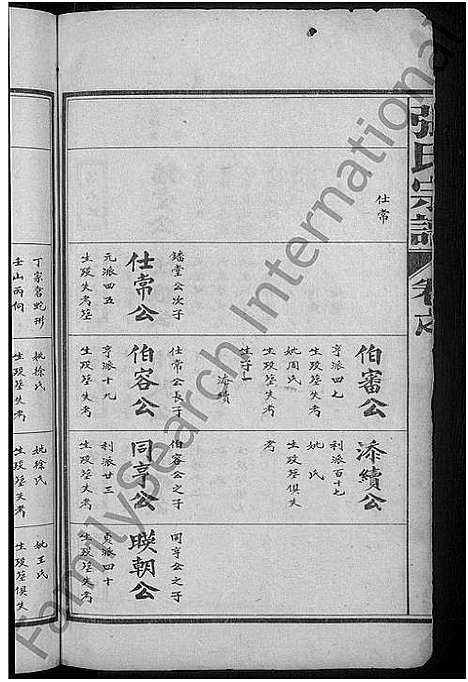 張氏宗譜
仕常
伯審公
亨派四七
生殁塟失考
妣周氏
生殁塟失考
生子一
添續
添續公
利派百十七
妣 氏
生殁塟俱失
考
鐇堂公次子
仕常公
元派四五
生殁失考塟
丁家倉蛇形
壬山丙向
仕常公長子
伯容公
亨派十九
生殁塟失考
妣徐氏
生殁塟失考
伯容公之子
同亨公
利派廿三
生殁塟失考
妣徐氏
生殁塟失考
同亨公之子
朕朝公
貞派四十
生殁塟失考
妣王氏
生殁塟俱失
FamilySearch International